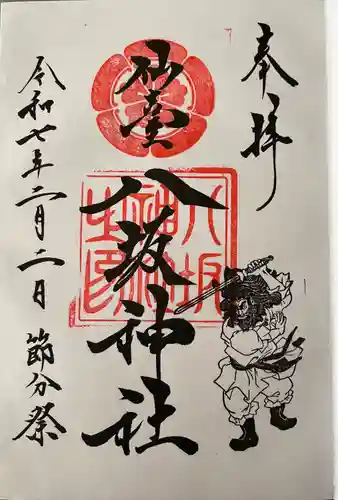 奉拝
仙臺
八坂神社
八坂神社之印
令和七年二月二日 節分祭